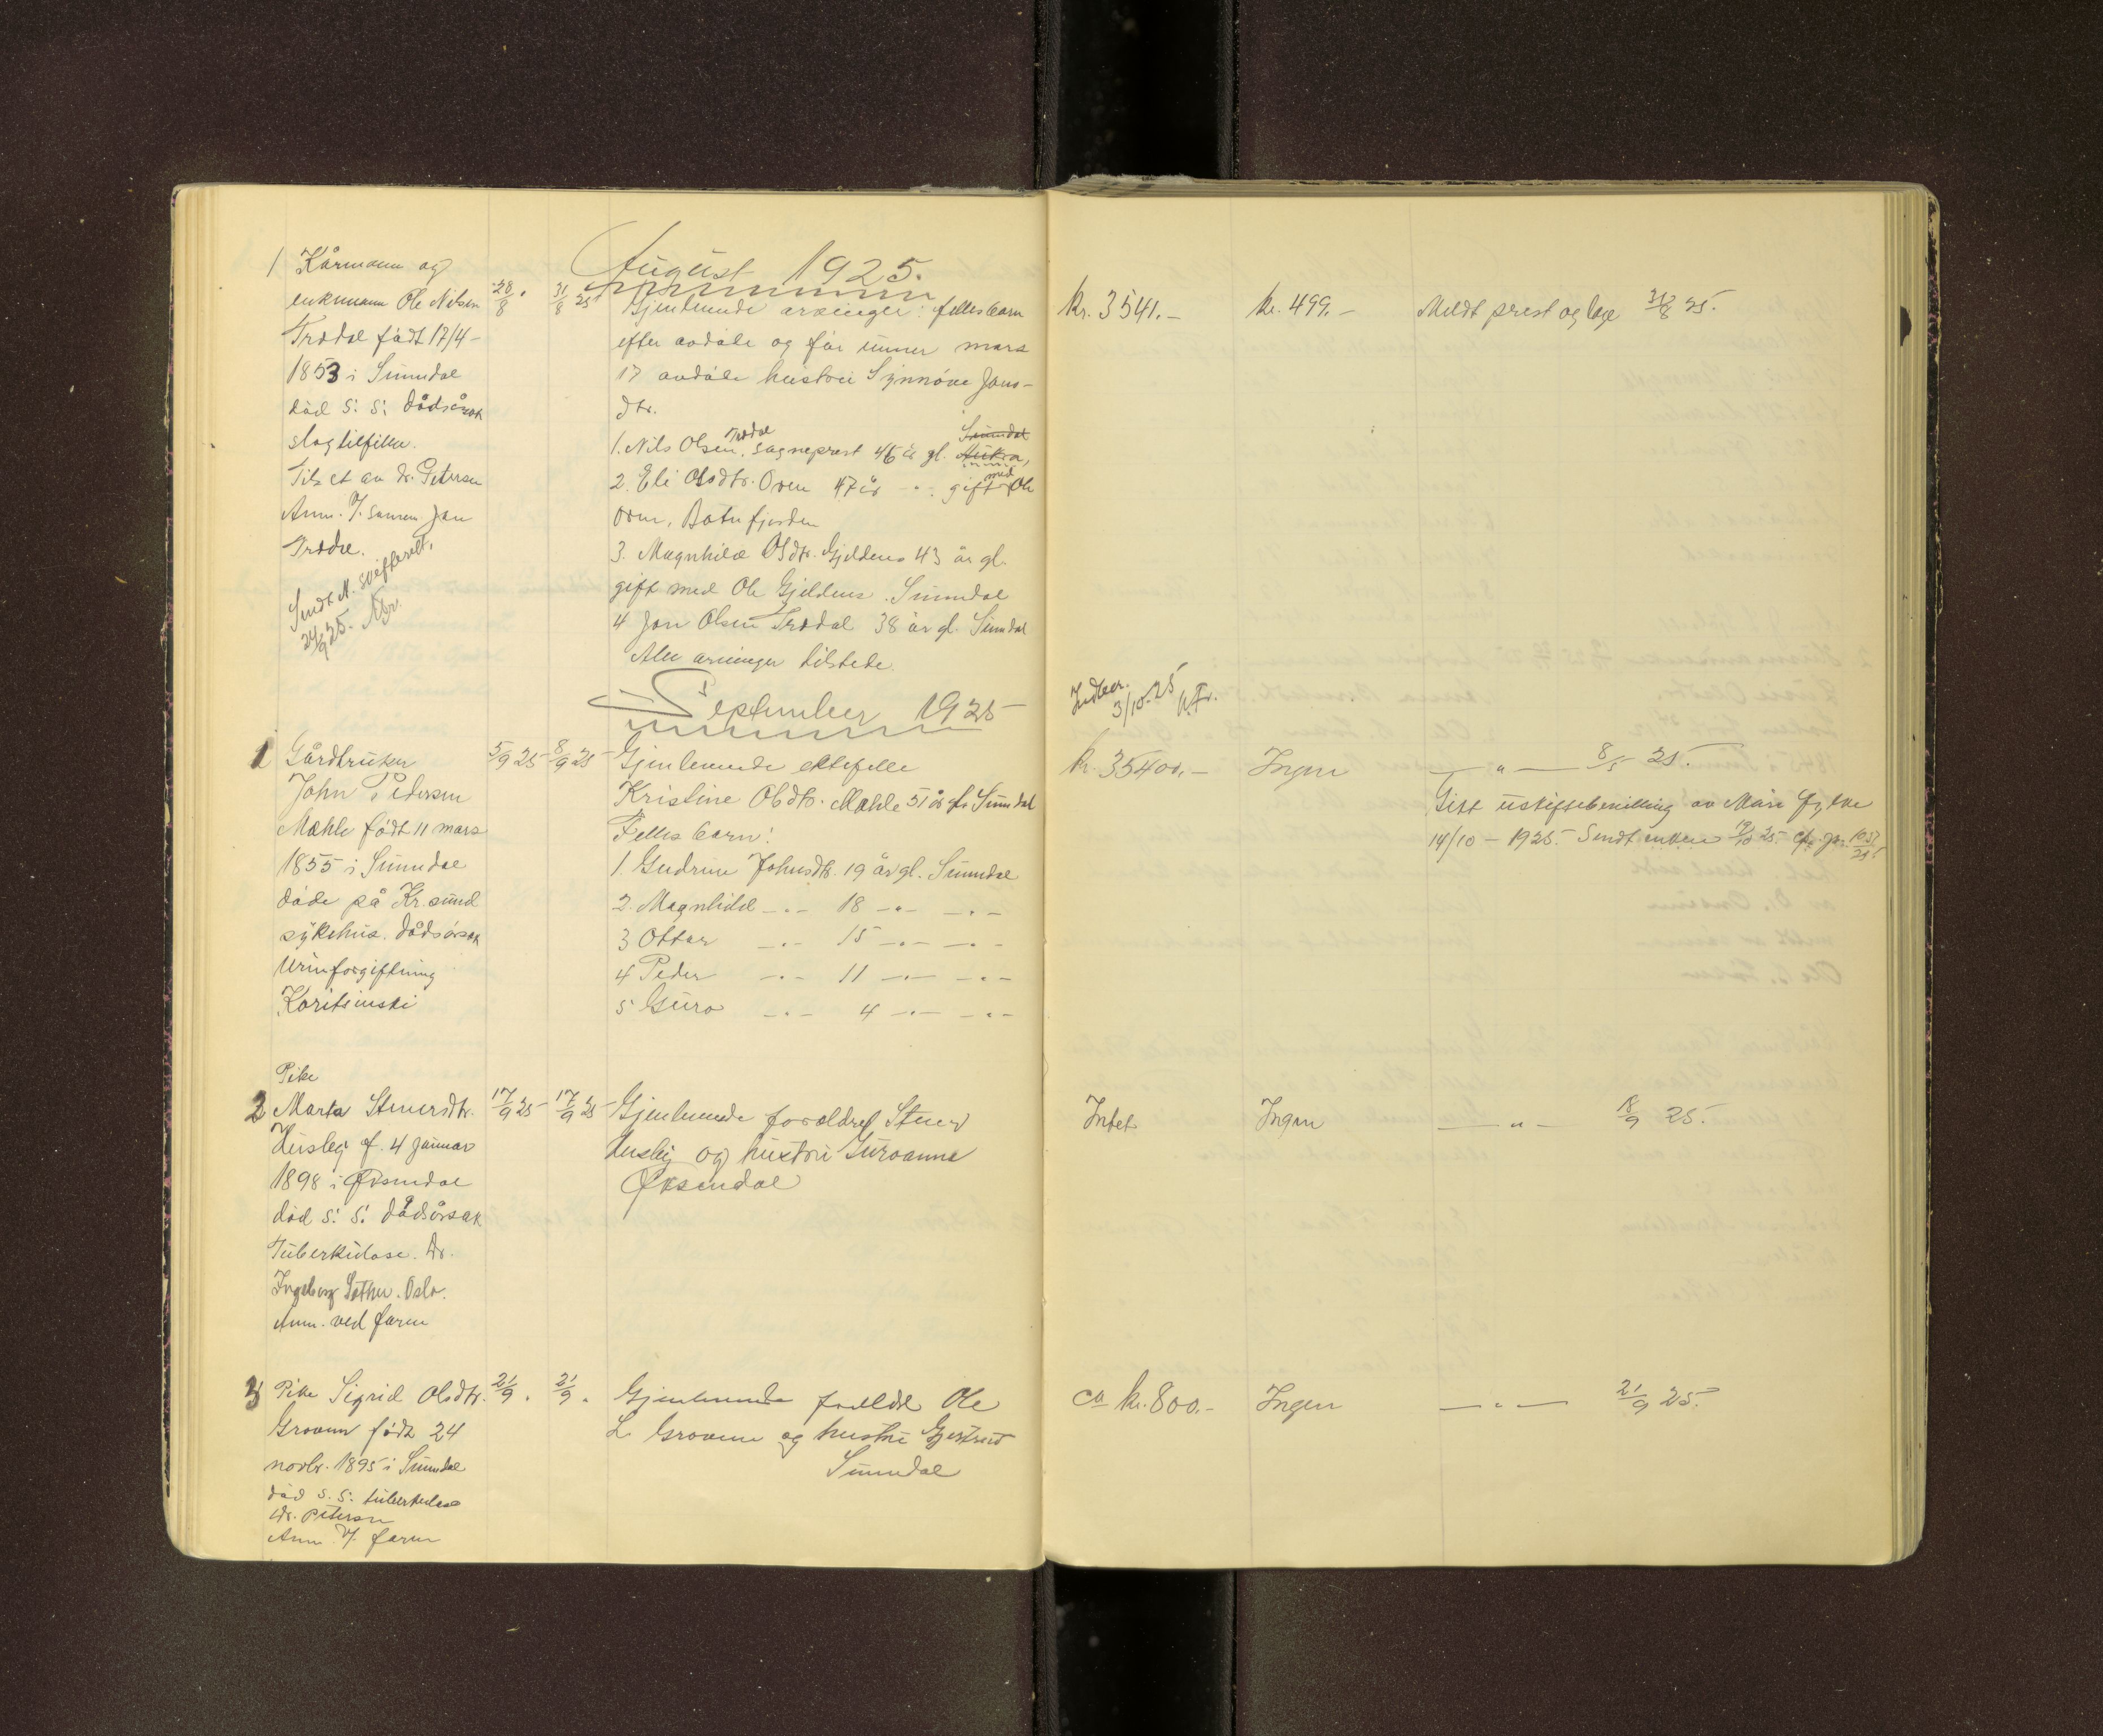 August 1925.
1 Kårmann og
enkmann Ole Nilsen
Trædal født 17/4-
1853 i Sunndal
død s: s: dødsårsak
slagtilfelle.
Tils et av dr. Petersen
Anm. v/ sønnen Jon
Trædal.
Sendt N. skifterett,
24/9 25.
28/8.
31/8 25
Gjenlevende arvinger: felles barn
efter avdøde og før ham mars
17 avdøde hustru Synnøve Jons-
dtr.
1. Nils Olsen Trædal, sogneprest 46 år gl. Sunndal Aukra,
2. Eli Olsdtr. Oren 47 år -"- gift med Ole
Oren, Batnfjorden
3. Magnhild Olsdtr. Gjeldnes 43 år gl.
gift med Ole Gjeldnes. Sunndal
4 Jon Olsen Trædal 38 år gl. Sunndal
Alle arvinger tilstede.
kr. 3541.-
kr. 499.-
Meldt prest og lege 31/8 25.
September 1925
3/10-25
1 Gårdbruker
John Pedersen
Mæhle født 11 mars
1855 i Sunndal
døde på Kr.sund
sykehus. Dødsårsak
Urinforgiftning
5/9 25 8/9 25
Gjenlevende ektefelle
Kristine Olsdtr. Mæhle 51 år gl. Sunndal
Felles barn:
1. Gudrun Johnsdtr. 19 år gl. Sunndal
2. Magnhild -"- 18 -"- -"-
3 Ottar -"- 15 -"- -"-
4 Peder -"- 11 -"- -"-
5 Guro -"- 4 -"- -"-
kr. 35400.-
Ingen
-"- 8/9 25.
Gitt uskiftebevilling av Møre fylke
14/10 - 1925. Sendt enken 19/10 25
Pike
2 Marta Stenersdtr.
Husby f. 4 januar
1898 i Øksendal
død s: s: dødsårsak
Tuberkulose. Dr.
Ingeborg Sæther. Oslo.
Anm. ved faren
17/9 25 17/9 25
Gjenlevende foreldre Stener
Husby og hustru Guroanna
Øksendal
Intet
Ingen
-"- 18/9 25.
3 Pike Sigrid Olsdtr.
Grovem født 24
novbr. 1895 i Sunndal
død s. s: tuberkulose
Dr. Petersen
Anm v/ faren
21/9. 21/9.
Gjenlevende foreldre Ole
L Grovem og hustru Gjertrud
Sunndal
ca kr. 800.-
Ingen
-"- 21/9 25.